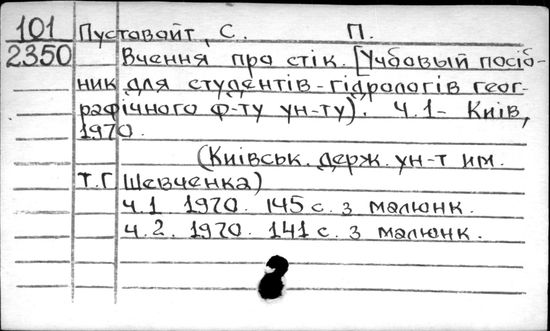 101 Пустовойт, С. П.
2350 Вчення про стік. [Учбовый посіб-
ник для студентів-гідрологів геог-
рафічного ф-ту ун-ту). Ч.1- Київ,
1970.
(Київськ. держ. ун-т им.
Т.Г Шевченка)
ч.1 1970. 145 с. з малюнк.
ч.2. 1970. 141 с. з малюнк.